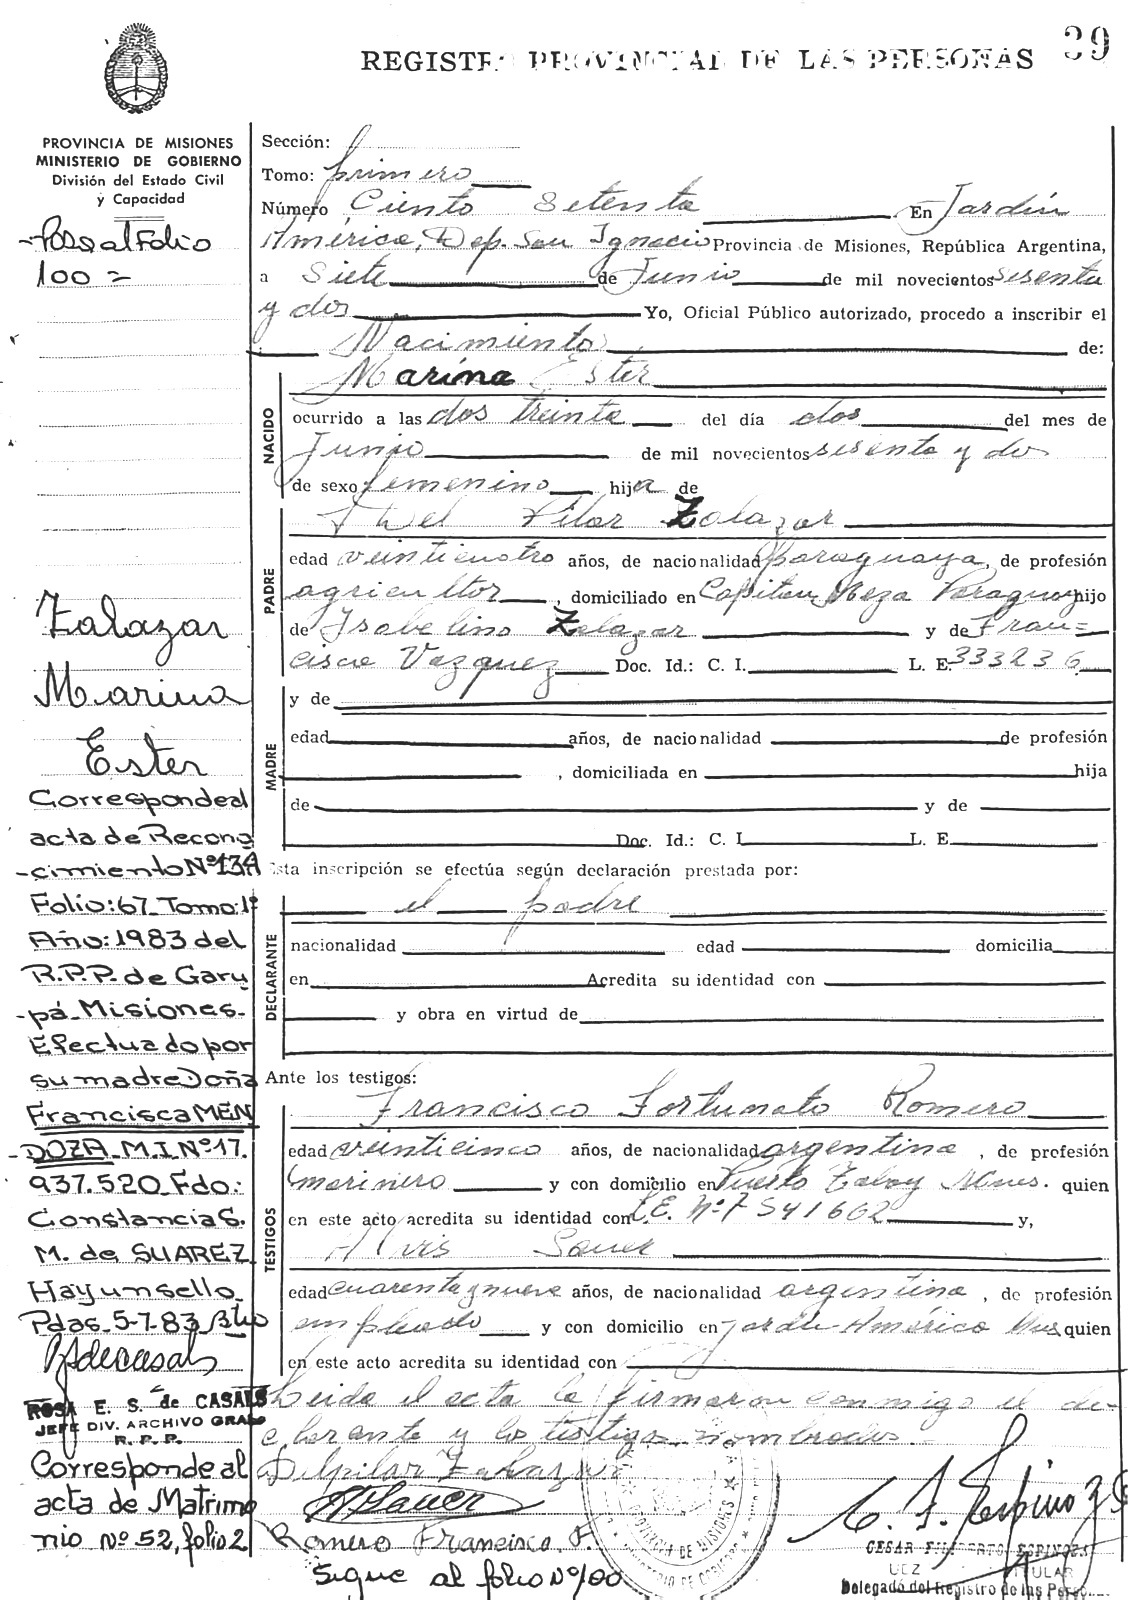 39
REGISTRO PROVINCIAL DE LAS PERSONAS
PROVINCIA DE MISIONES
MINISTERIO DE GOBIERNO
División del Estado Civil
y Capacidad
Pasa al Folio
100=
Zalazar
Marina
Ester
Corresponde al
acta de Recono
cimiento Nº 134
Folio: 67 Tomo: 1º
Año: 1983 del
R.P.P. de Garu
pá Misiones-
Efectuado por
su madre Doña
Francisca MEN
DOZA M.I Nº 17.
937.520 Fdo:
Constancia S.
M. de SUAREZ
Hay un sello
Pdas 5-7-83
ROSA E. S. de CASALS
JEFE DIV. ARCHIVO GRAL
R. P. P.
Corresponde al
acta de Matrimo
nio Nº 52, folio 2
Sección:
Tomo: primero
Número Ciento Setenta En Jardín
América, Dep. San Ignacio Provincia de Misiones, República Argentina,
a Siete de Junio de mil novecientos sesenta
y dos Yo, Oficial Público autorizado, procedo a inscribir el
Nacimiento de:
NACIDO
Marina Ester
ocurrido a las dos treinta del día dos del mes de
Junio de mil novecientos sesenta y dos
de sexo femenino hija de
PADRE
Del Pilar Zalazar
edad veinticuatro años, de nacionalidad paraguaya, de profesión
agricultor, domiciliado en Capitan Meza Paraguay hijo
de Isabelino Zalazar y de Fran=
cisca Vazquez Doc. Id.: C. I. L. E. 333236
MADRE
y de
edad años, de nacionalidad de profesión
, domiciliada en hija
de y de
Doc. Id.: C. I. L. E.
Esta inscripción se efectúa según declaración prestada por:
DECLARANTE
el padre
nacionalidad edad domicilia
en Acredita su identidad con
y obra en virtud de
Ante los testigos:
TESTIGOS
Francisco Fortunato Romero
edad veinticinco años, de nacionalidad argentina, de profesión
marinero y con domicilio en Puerto Mnes. quien
en este acto acredita su identidad con L.E. Nº 7541602 y,
edad cuarenta y nueve años, de nacionalidad argentina, de profesión
empleado y con domicilio en Jardín América Mns quien
en este acto acredita su identidad con
Leida el acta la firmaron conmigo el de-
clarante y los testigos nombrados.-
Delpilar Zalazar
Romero Francisco F.
Sigue al folio Nº 100
CESAR FILIBERTO ESPINOZA
JUEZ TITULAR
Delegado del Registro de las Person